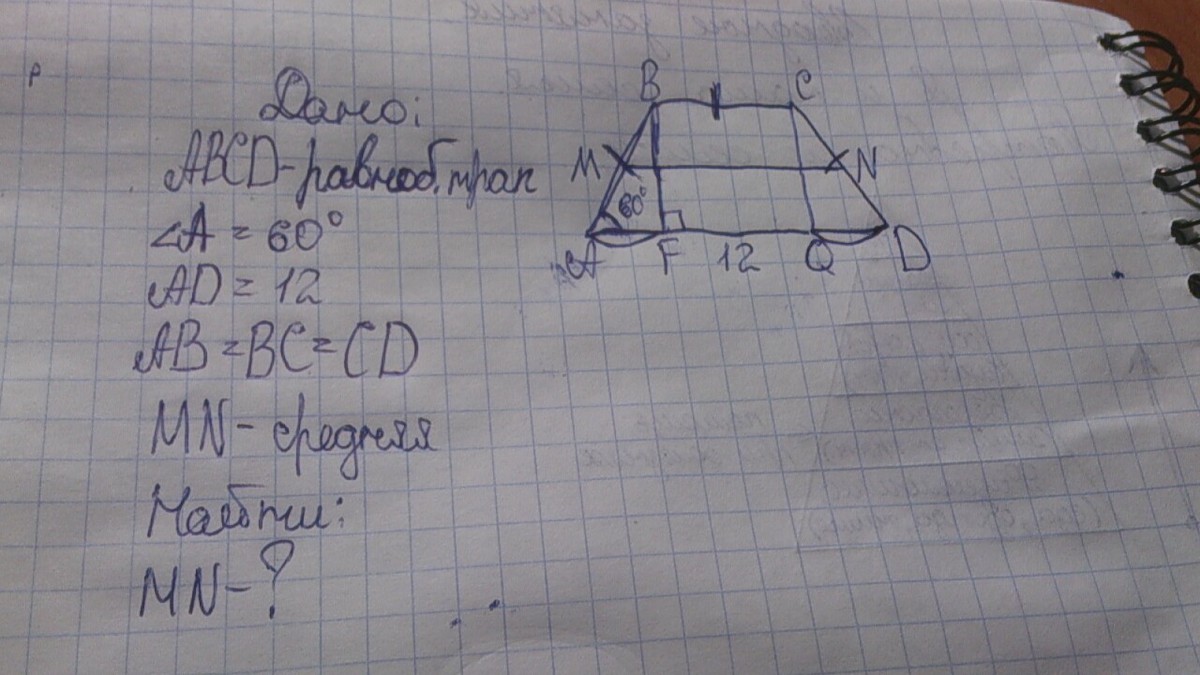 Дано:
ABCD-равноб. трап
∠A = 60°
AD = 12
AB = BC = CD
MN- средняя
Найти:
MN-?
B C
M N
60°
A F 12 Q D